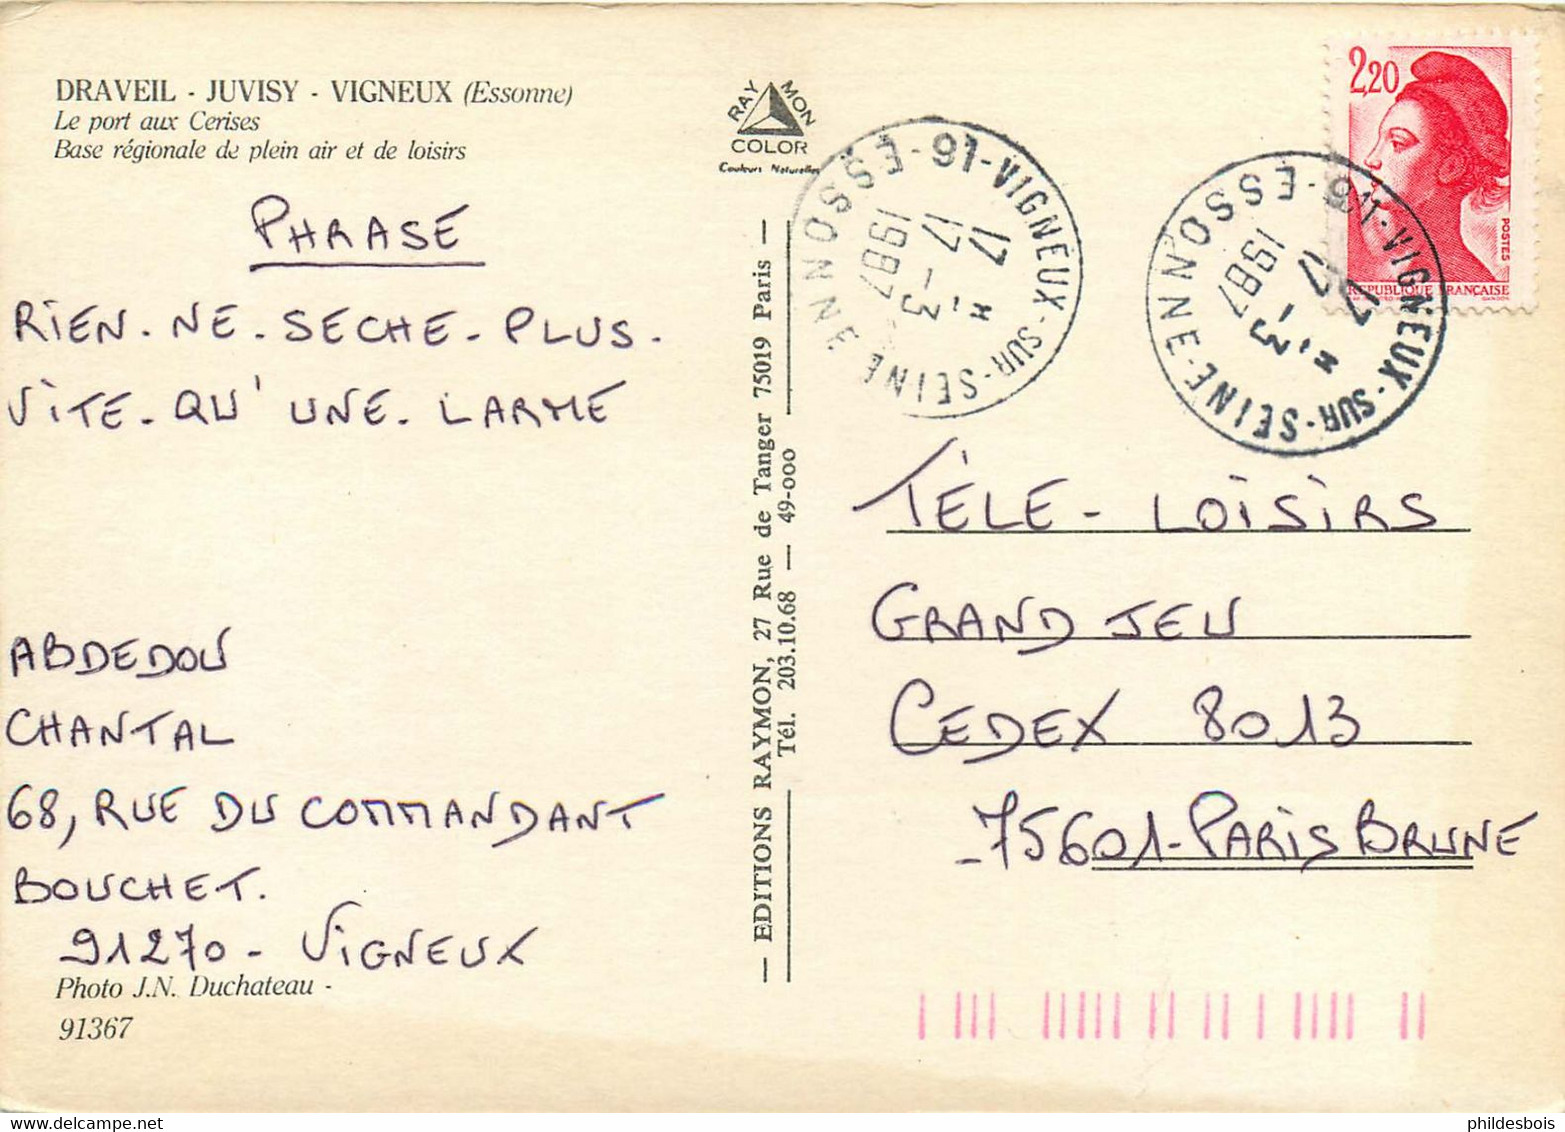 DRAVEIL - JUVISY - VIGNEUX (Essonne)
Le port aux Cerises
Base régionale de plein air et de loisirs
PHRASE
RIEN-NE-SECHE-PLUS-
VITE-QU'UNE-LARME
ABDEDOU
CHANTAL
68, RUE DU COMMANDANT
BOUCHET.
91270 - VIGNEUX
Photo J.N. Duchateau -
91367
RAYMON
COLOR
Couleurs Naturelles
— EDITIONS RAYMON, 27 Rue de Tanger 75019 Paris —
Tél. 203.10.68 — 49-000
91-VIGNEUX-SUR-SEINE-ESSONNE
17 H
17-3
1987
91-VIGNEUX-SUR-SEINE-ESSONNE
17 H
17-3
1987
2,20
POSTES
REPUBLIQUE FRANÇAISE
TÉLE-LOISIRS
GRAND JEU
CEDEX 8013
-75601-PARIS BRUNE
phildesbois